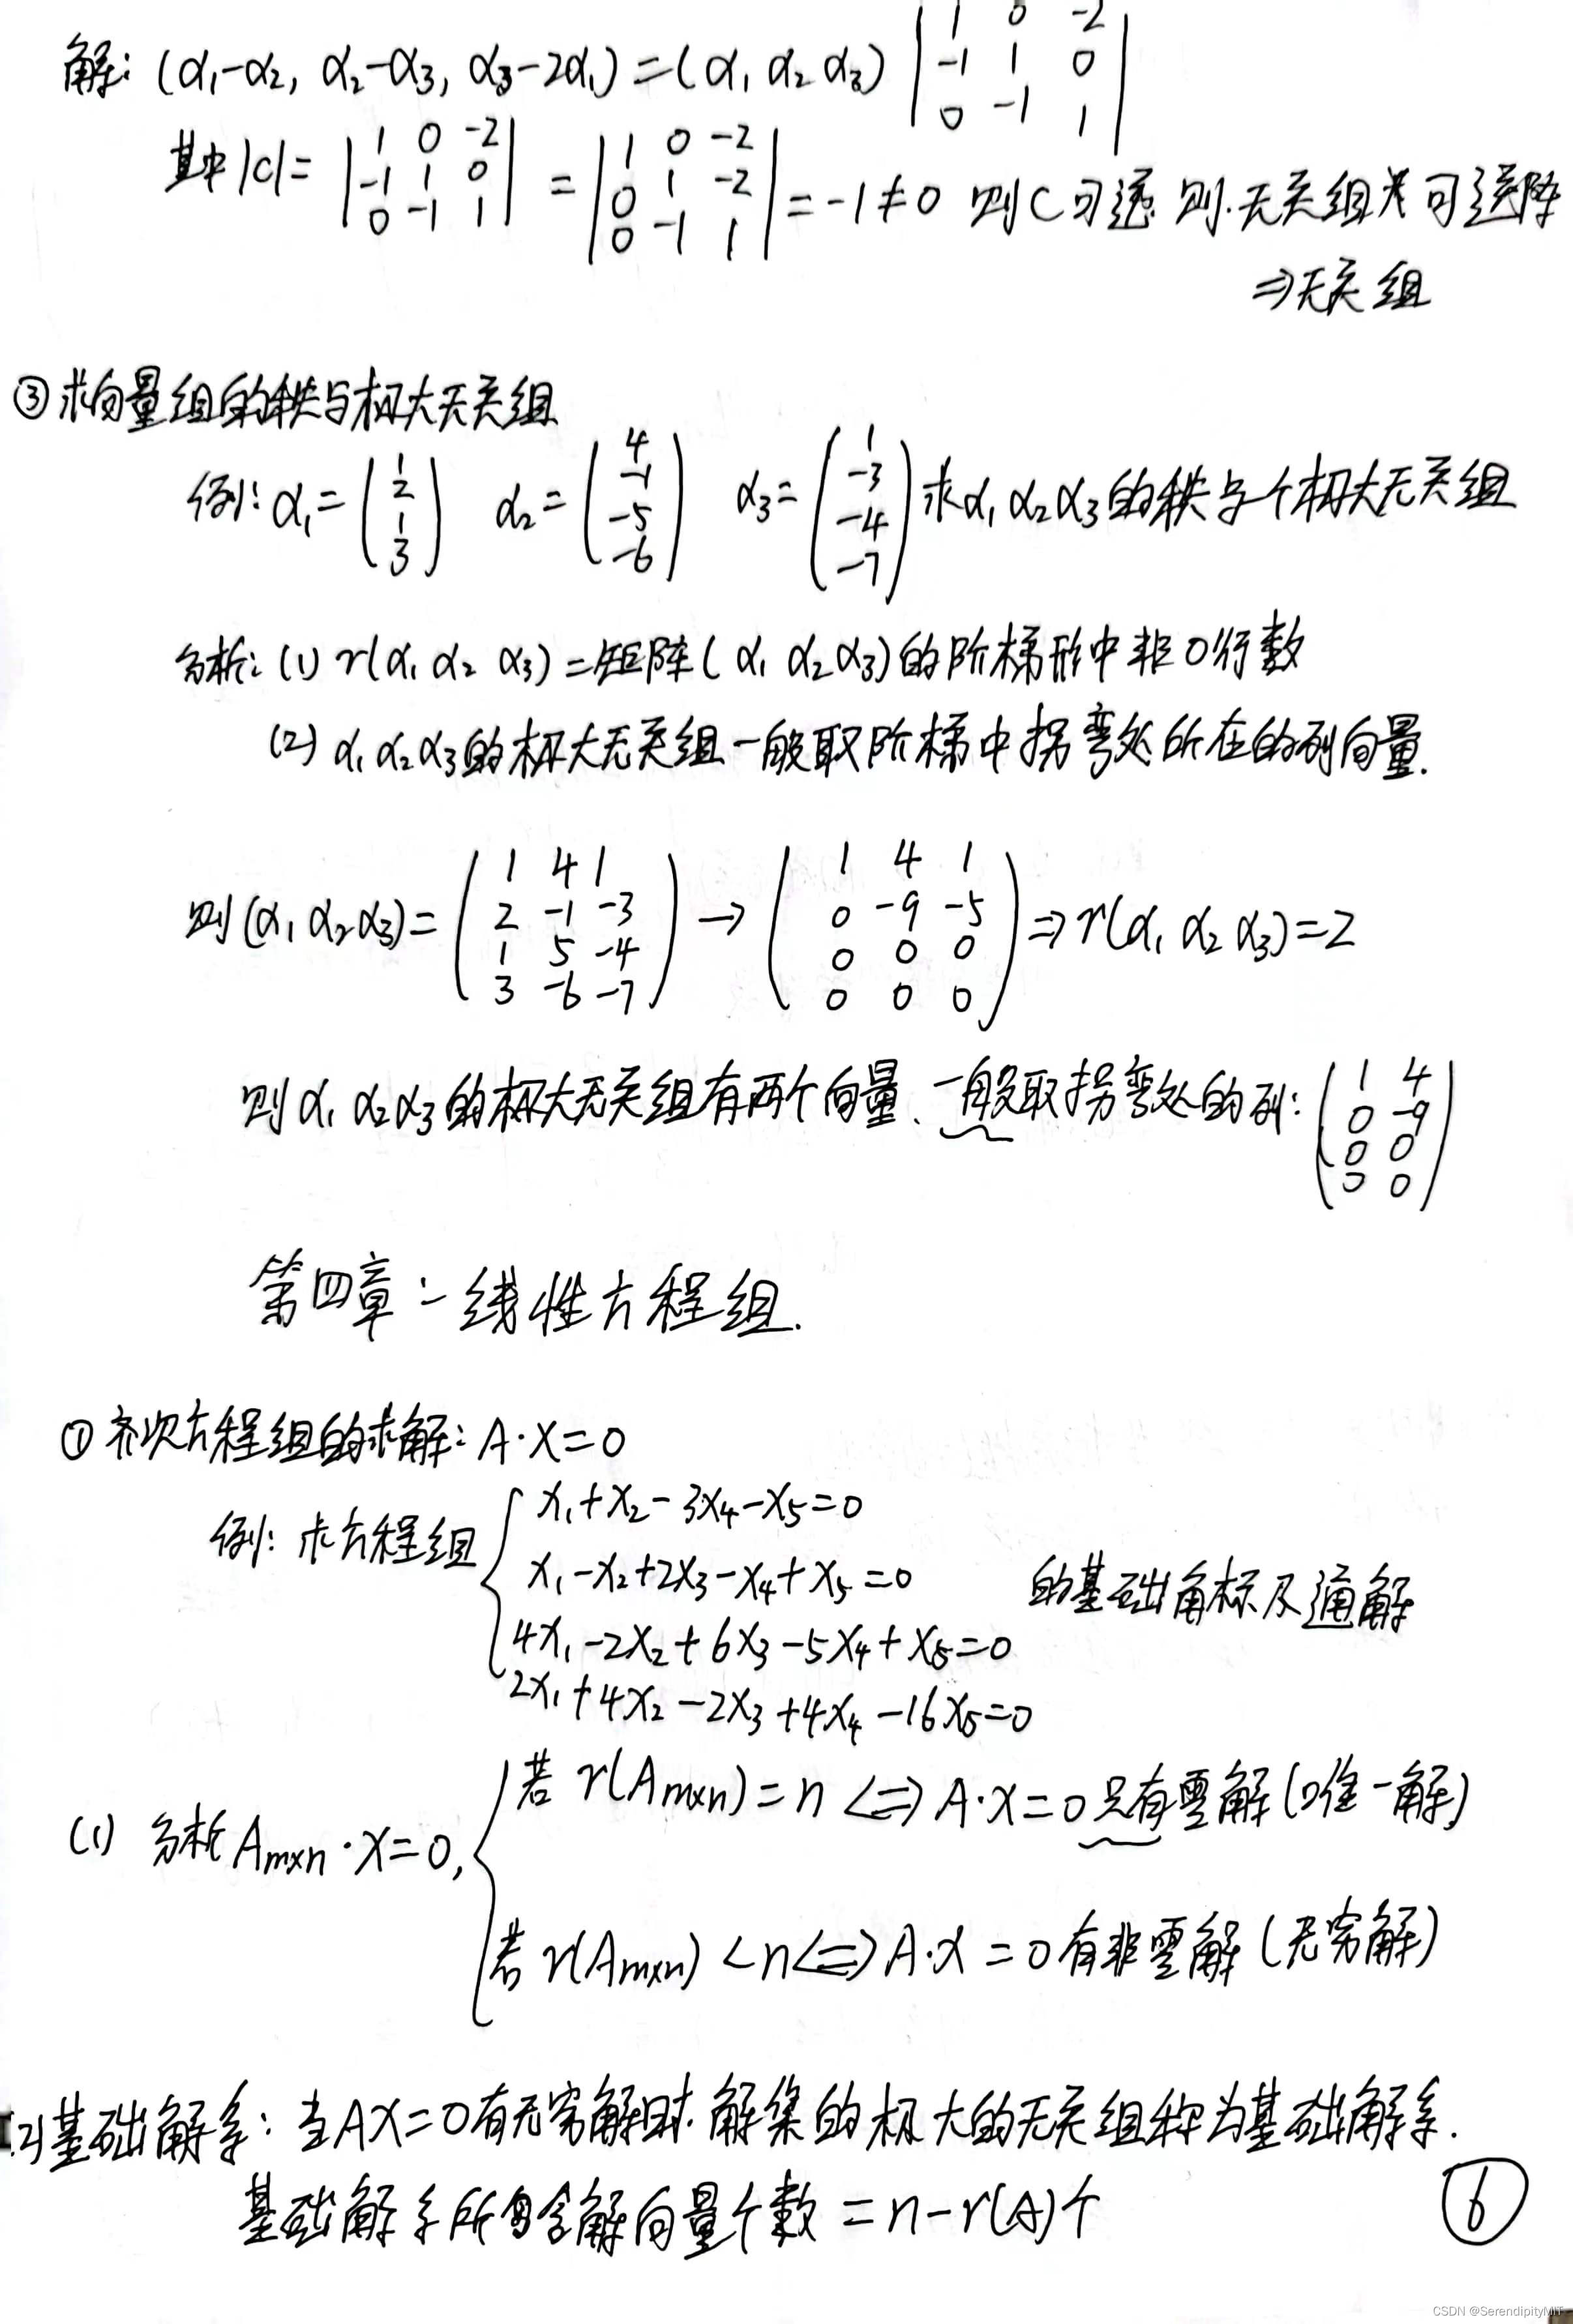 解：(α₁-α₂, α₂-α₃, α₃-2α₁)=(α₁ α₂ α₃) | 1 0 -2 | -1 1 0 | 0 -1 1 |
其中|C|= | 1 0 -2 | -1 1 0 | 0 -1 1 | = | 1 0 -2 | 0 1 -2 | 0 -1 1 | =-1≠0 则C可逆 则.无关组×可逆阵
⇒无关组
③求向量组的秩与极大无关组
例: α₁= (1 2 1 3) α₂= (4 -1 -5 -6) α₃= (1 -3 -4 -7) 求α₁ α₂ α₃的秩与个极大无关组
分析: (1) r(α₁ α₂ α₃)=矩阵(α₁ α₂ α₃)的阶梯形中非0行数
(2) α₁ α₂ α₃的极大无关组一般取阶梯中拐弯处所在的列向量.
则(α₁ α₂ α₃)= ( 1 4 1 | 2 -1 -3 | 1 5 -4 | 3 -6 -7 ) → ( 1 4 1 | 0 -9 -5 | 0 0 0 | 0 0 0 ) ⇒r(α₁ α₂ α₃)=2
则α₁ α₂ α₃的极大无关组有两个向量、一般取拐弯处的列: ( 1 4 | 0 -9 | 0 0 | 0 0 )
第四章:-线性方程组.
①齐次方程组的求解: A·X=0
x₁+x₂-3x₄-x₅=0
例: 求方程组 x₁-x₂+2x₃-x₄+x₅=0 的基础角标及通解
4x₁-2x₂+6x₃-5x₄+x₅=0
2x₁+4x₂-2x₃+4x₄-16x₅=0
若 r(Am×n)=n ⇔ A·X=0只有零解(唯一解)
(1) 分析Am×n·X=0,
若 r(Am×n)<n⇔A·X=0有非零解(无穷解)
(2)基础解系: 当AX=0有无穷解时.解集的极大的无关组称为基础解系.
基础解系所包含解向量个数=n-r(A)个
⑥
CSDN @SerendipityMIT